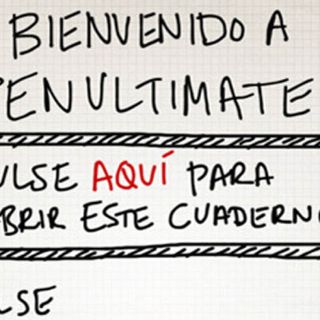 BIENVENIDO A
PENULTIMATE
PULSE AQUÍ PARA
ABRIR ESTE CUADERNO
PULSE